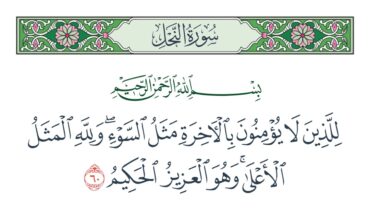 سُورَةُ النَّحْلِ
بِسْمِ اللَّهِ الرَّحْمَٰنِ الرَّحِيمِ
لِلَّذِينَ لَا يُؤْمِنُونَ بِالْآخِرَةِ مَثَلُ السَّوْءِ ۖ وَلِلَّهِ الْمَثَلُ
الْأَعْلَىٰ ۚ وَهُوَ الْعَزِيزُ الْحَكِيمُ ٦٠